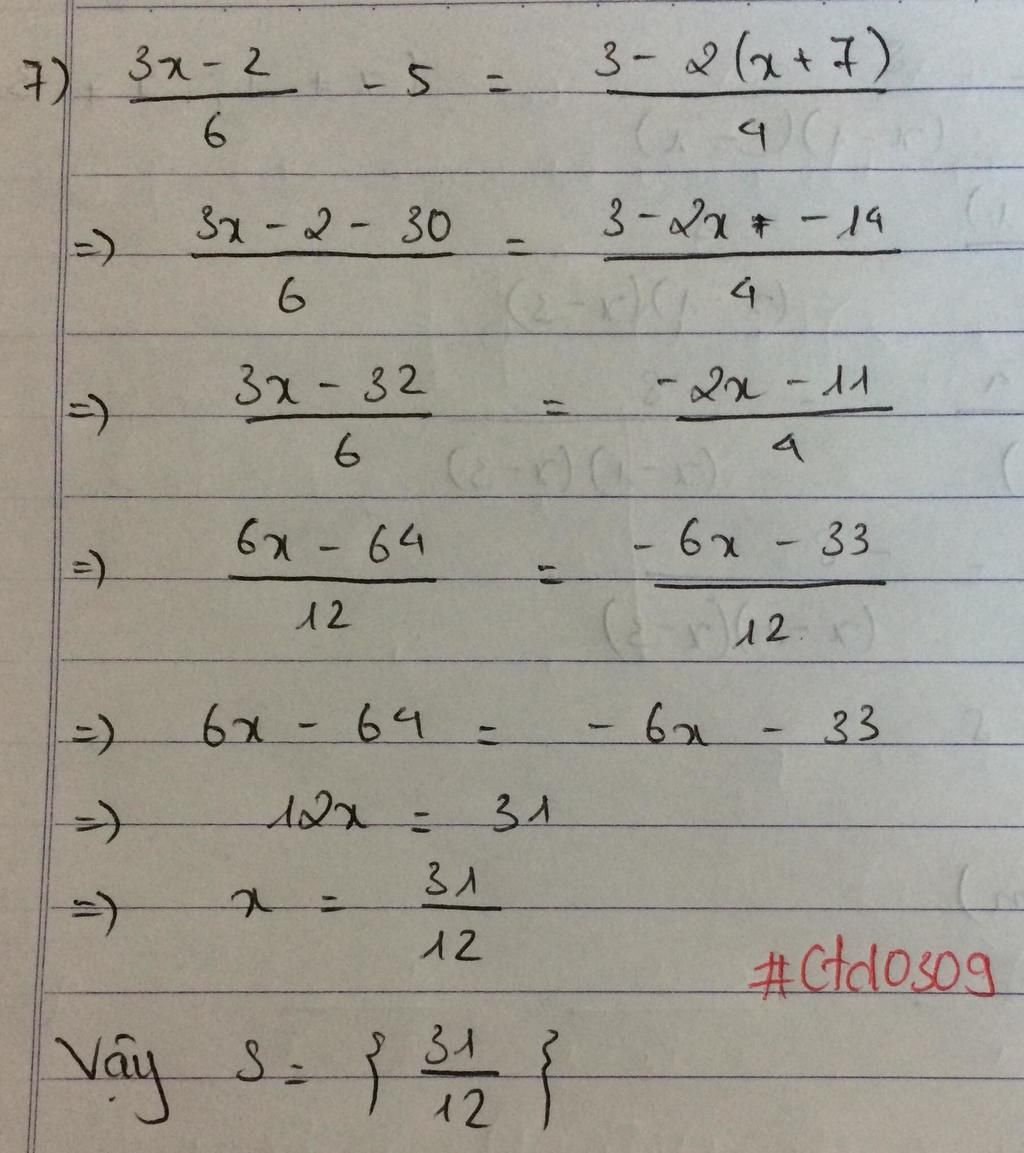 7) (3x - 2)/6 - 5 = (3 - 2(x + 7))/4
=) (3x - 2 - 30)/6 = (3 - 2x - 14)/4
=) (3x - 32)/6 = (-2x - 11)/4
=) (6x - 64)/12 = (-6x - 33)/12
=) 6x - 64 = - 6x - 33
=) 12x = 31
=) x = 31/12
#Ctd0309
Vậy S = { 31/12 }